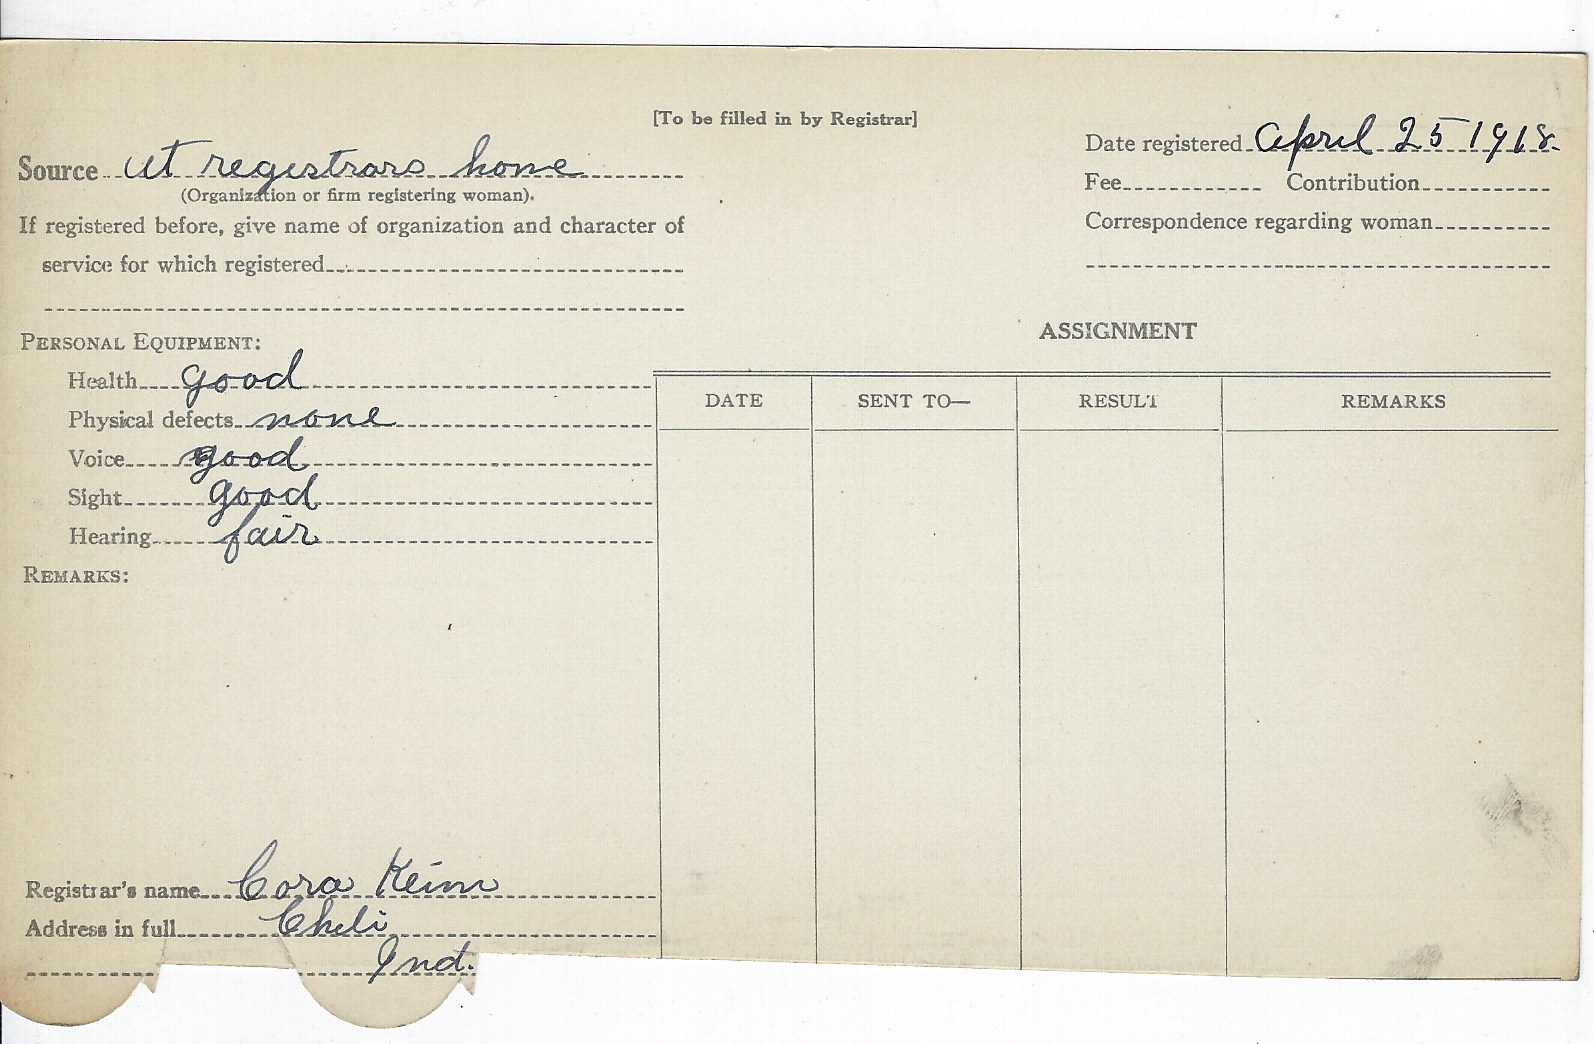 [To be filled in by Registrar]
Source at registrars home
(Organization or firm registering woman).
If registered before, give name of organization and character of
service for which registered
Date registered April 25 1918.
Fee Contribution
Correspondence regarding woman
PERSONAL EQUIPMENT:
Health good
Physical defects none
Voice good
Sight good
Hearing fair
REMARKS:
ASSIGNMENT
DATE SENT TO— RESULT REMARKS
Registrar's name Cora Keim
Address in full Chili
Ind.